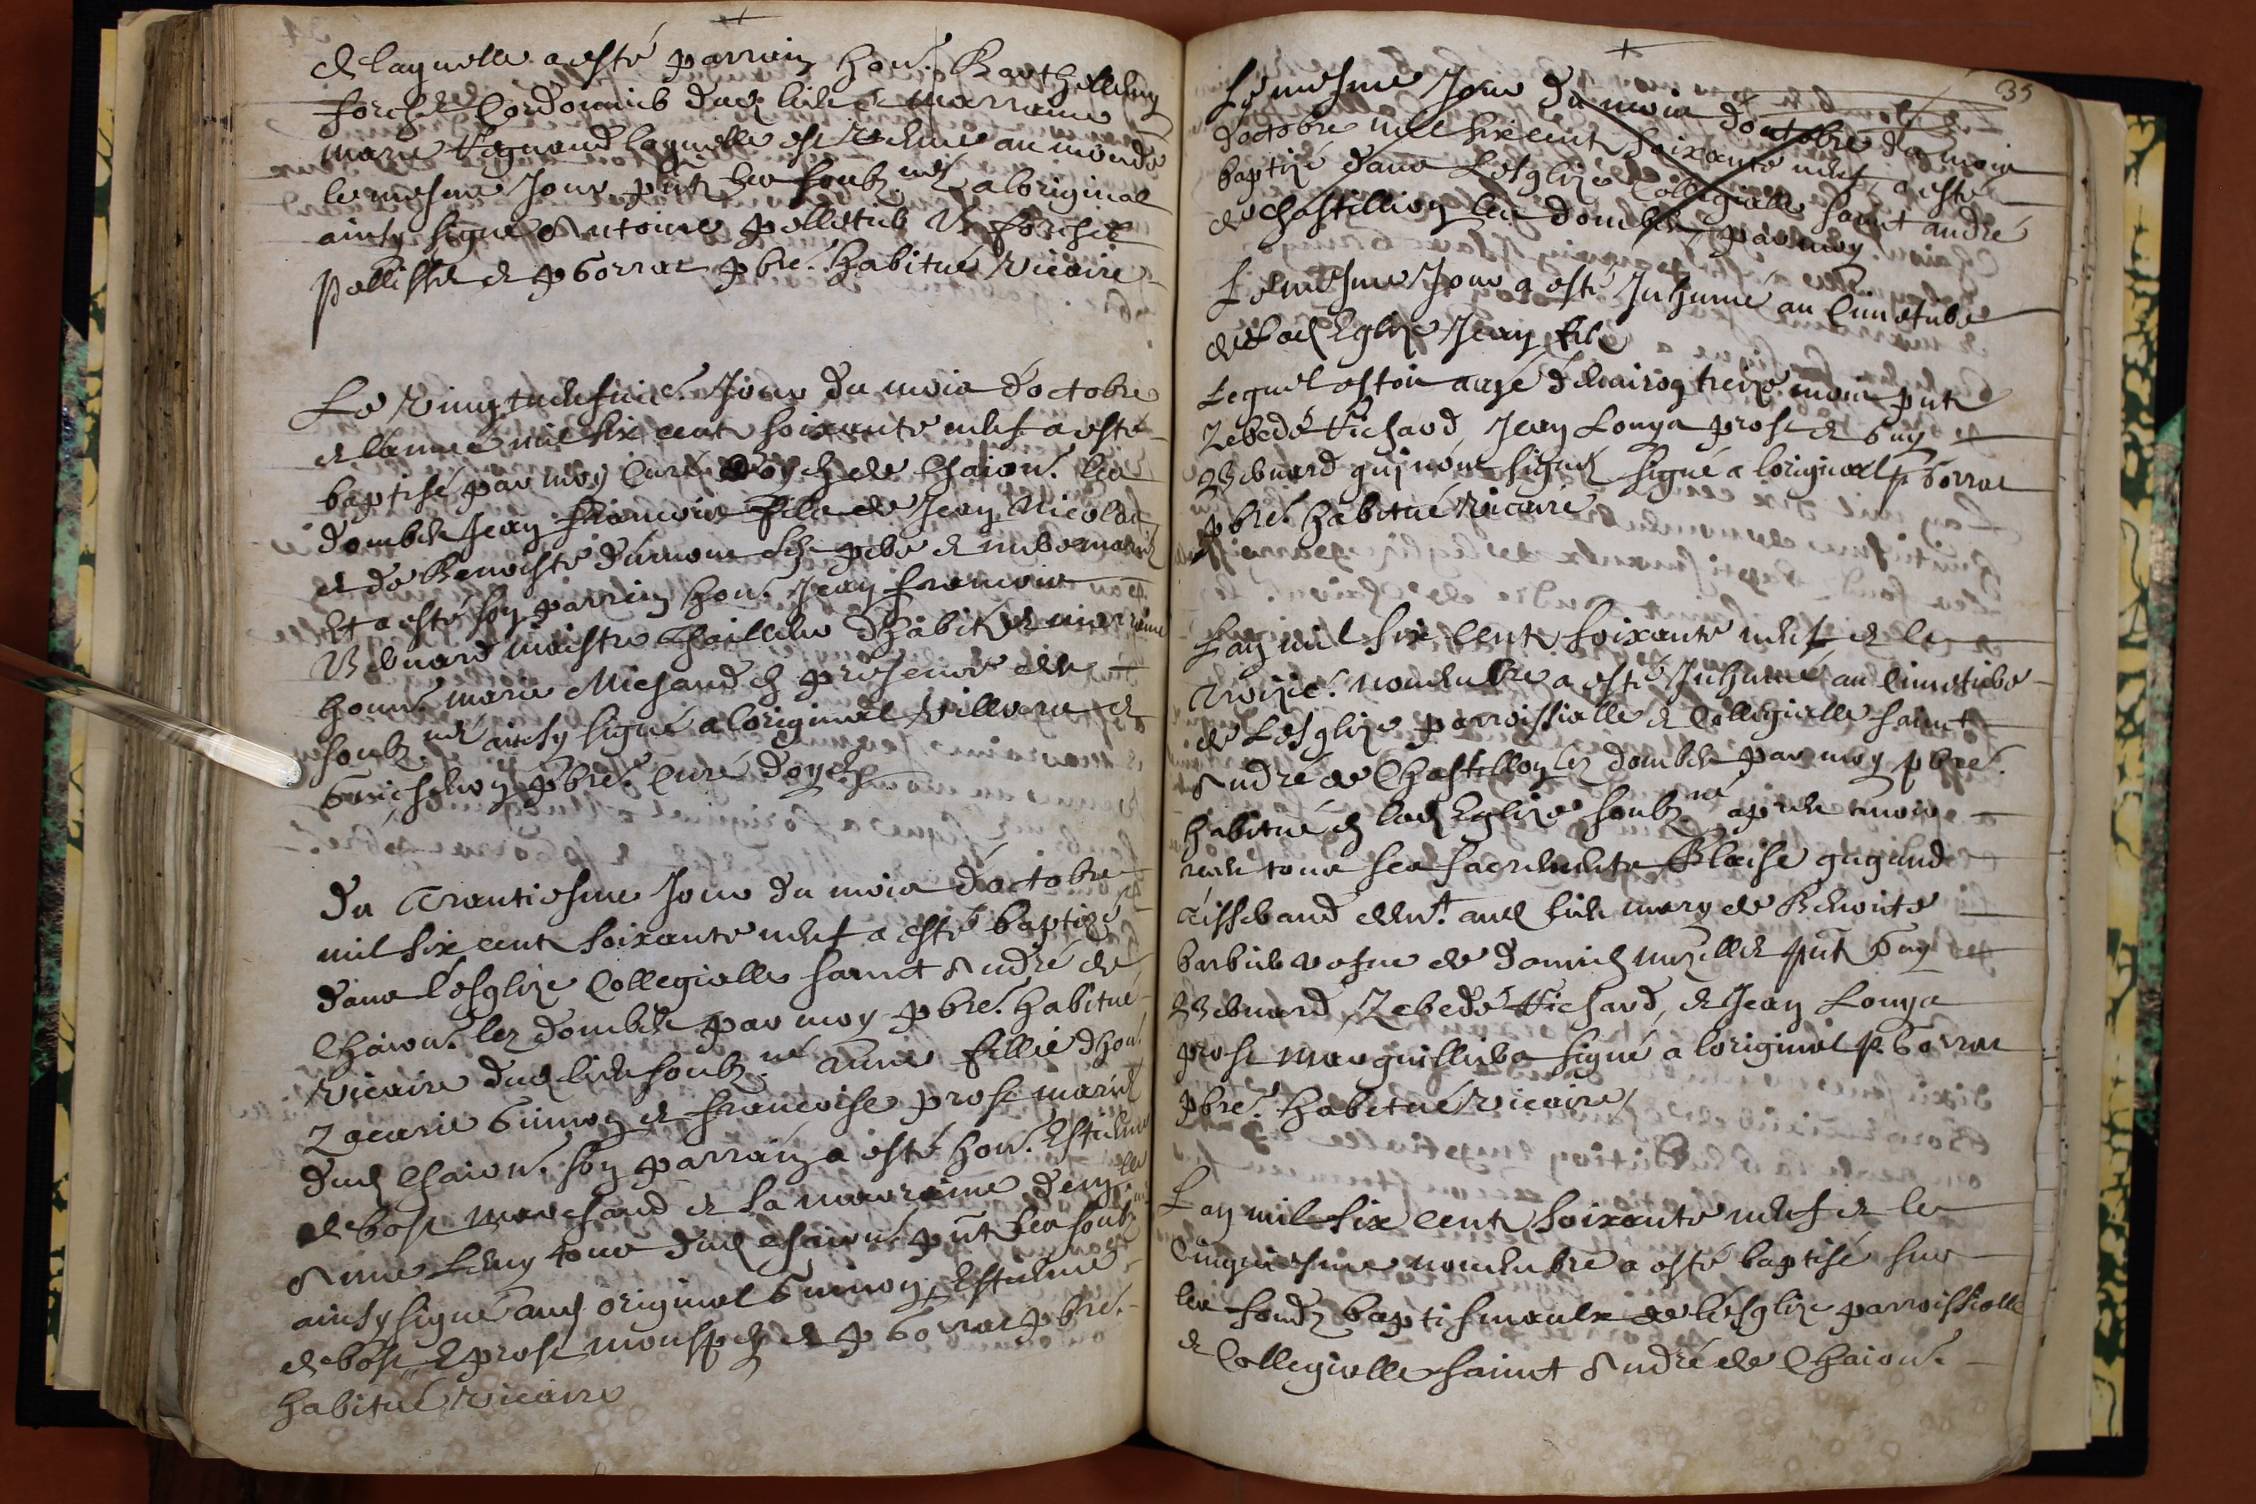 de laquelle a esté parrain hon. Barthellemy
forchet Cordonnier dud. lieu & marraine
marie laquelle est venue au monde
le mesme Jour pñt les soubz.nés a loriginal
ainsy signé Antoine pelletier B forchet
pellisse & p Gorrat pbre. habitué Vicaire
Le Vingt Jour du mois d'octobre
de lannée mil six cent soixante neuf a esté
baptisé par moy Curé doyen de Chaion. les
dombes Jean francois fils de Jean Nicolas
et de Benoiste mariés
Et a esté son parrin hon. Jean francois
Bernard maistre Tailleur d'habits & marraine
honn. marie Michaud en presence des
soubz.nés ainsy signé a loriginal &
Guichenon pbre. Curé doyen
Du Trantiesme Jour du mois d'octobre
mil six cent soixante neuf a esté baptizé
dans l'esglize Collegialle sainct André de
Chaion. les dombes par moy pbre. habitué
Vicaire dud. lieu soubz.né anne fillie d'hon.
Zacarie Guinon & francoise prost mariés
dud. Chaion. son parrain a esté hon. Estienne
debost marchand & la marraine
Anne tous dud. Chaion. pñt les soubz
ainsy signé aud. original Guinon, Estienne
debost, E prost & p Gorrat pbre.
habitué Vicaire
35
Le mesme Jour du mois d'octobre du mois
d'octobre mil six cent soixante neuf a esté
baptizé dans L'esglize Collegialle sainct andré
de chastillion les dombes par moy
Le mesme Jour a esté Inhumé au Cimetiere
de lad. Eglize Jean fils
Lequel estoit aagé d'environ treize mois pñts
Zebedé Richard, Jean Louys prost & Guy
Bernard qui nont signés signé a loriginal p Gorrat
pbre. habitué Vicaire
Lan mil six cent soixante neuf & le
Troizie. novembre a esté Inhumé au Cimetiere
de L'esglize parroissialle & Collegialle sainct
André de Chastillon les dombes par moy pbre.
habitué en lad. Eglize soubz.né apres avoir
receu tous ses sacrements Blaise
Tisserand aud. lieu mary de Benoite
Barbier vefve de pñt Guy
Bernard, Zebedé Richard, & Jean Louys
prost marguilliers signé a loriginal p. Gorrat
pbre. habitué Vicaire
Lan mil six cent soixante neuf & le
Cinquiesme novembre a esté baptisé sur
les fondz baptismaulx de l'esglize parroissialle
& Collegialle sainct André de Chaion.